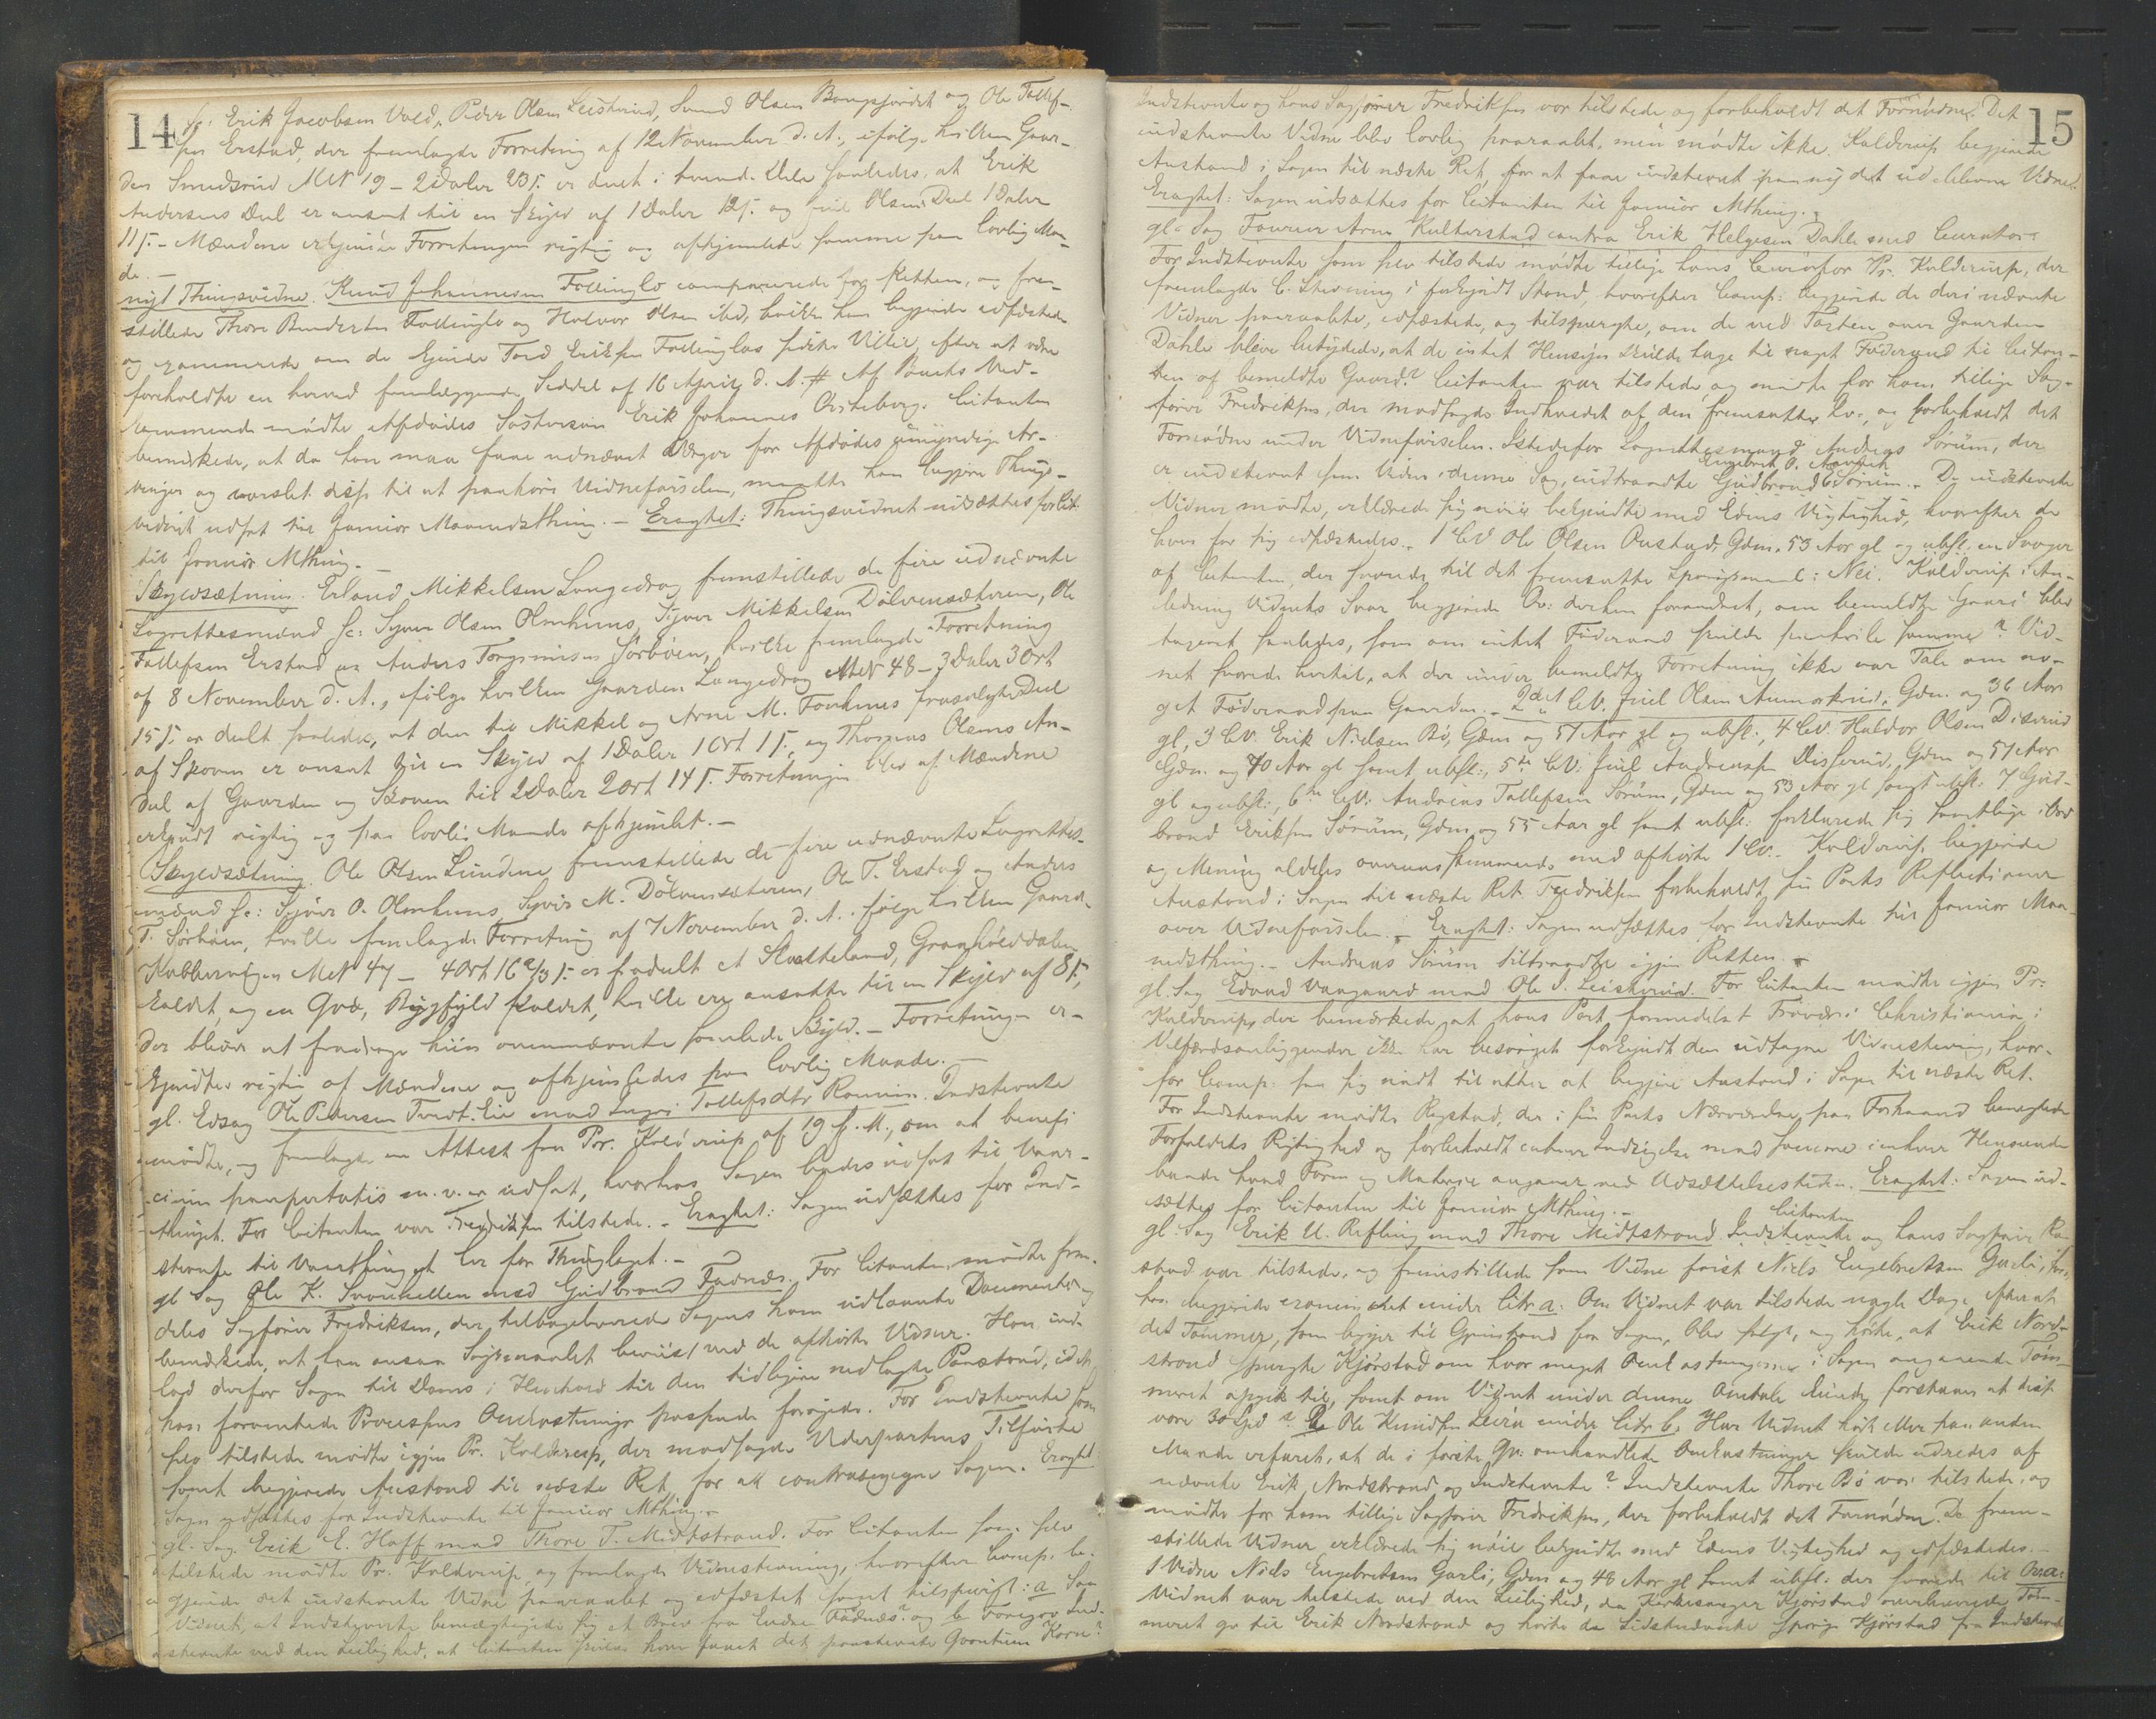 14
sc: Erik Jacobsen Vold, Peder Olsen Leiskerud, Svend Olsen Bangsjordet og Ole Tollef-
sen Erstad, der fremlagde Forretning af 12 November d. A., ifølge hvilken Gaar-
den Smedsrud MN 19 – 2 Daler 23 s. er deelt i tvende Dele saaledes, at Erik
Andersens Deel er ansat til en Skyld af 1 Daler 12 s. og Juel Olsens Deel 1 Daler
11 s. – Mændene erkjendte Forretningen rigtig og afhjemlede samme paa lovlig Maa-
de. –
nyt Thingsvidne. Knud Johannesen Follinglo comparerede for Retten, og frem-
stillede Thore Bendixsen Follinglo og Halvor Olsen ibd, hvilke han begjerede edfæstede
og examinerede om de kjende Tord Eriksen Follinglos sidste Villie, efter at være
foreholdte en herved fremlæggende Seddel af 16 April d. A. # Af Paarts Ved-
kommende mødte Afdødes Søstersøn Erik Johannes Oesteberg. Citanten
bemærkede, at da han maa faae udnævnt Værger for Afdødes umyndige Ar-
vinger og varslet disse til at paahøre Vidneførselen, maatte han begjere Things-
vidnet udsat til Januar Maanedsthing. – Eragtet: Thingsvidnet udsættes for Cit.
til Januar Mthing. –
Skyldsætning. Erland Mikkelsen Langedrag fremstillede de fire udnævnte
Lagrettesmænd sc: Syver Olsen Olmhuus, Syver Mikkelsen Dølvensæteren, Ole
Tollefsen Erstad og Anders Torgrimsen Sørbøen, hvilke fremlagde Forretning
af 8 November d. A., følge hvilken Gaarden Langedrag MN 48 – 3 Daler 3 Ort
15 s. er deelt saaledes, at den til Mikkel og Arne M. Fonhuus frasolgte Deel
af Skoven er ansat til en Skyld af 1 Daler 1 Ort 1 s. og Thomas Olsens An-
deel af Gaarden og Skoven til 2 Daler 2 Ort 14 s. Forretningen blev af Mændene
erkjendt rigtig og paa lovlig Maade afhjemlet. –
Skyldsætning. Ole Olsen Lundene fremstillede de fire udnævnte Lagrettes-
mænd sc: Syver O. Olmhuus, Syver M. Dølvensæteren, Ole T. Erstad og Anders
T. Sørbøen, hvilke fremlagde Forretning af 7 November d. A. følge hvilken Gaard.
MN 47 – 4 Ort 16 2/3 s. er fradeelt et Slaatteland, Granhøiddalen
kaldet, og en Qvæ, Bygfyld kaldet, hvilke ere ansatte til en Skyld af 8 s.,
der bliver at fradrage hiin ovennævnte samlede Skyld. – Forretningen er-
kjendtes rigtig af Mændene og afhjemledes paa lovlig Maade. –
gl. Edsag Ole Pedersen Tveit-Eie mod Ingri Tollefsdtr Rannin. Indstevnte
mødte, og fremlagde en Attest fra Pr. Kolderup af 19 f. M., om at benefi
cium paupertatis m. v. er udsat, hvorhos Sagen bedes udsat til Vaar-
thinget. For Citanten var Fredriksen tilstede. – Eragtet: Sagen udsættes for Ind-
stevnte til Vaarthinget her for Thinglaget. –
gl Sag Ole K. Svenkellen mod Gudbrand Fadnæs. For Citanten mødte frem-
deles Sagfører Fredriksen, der tilbageleverede Sagens ham udlaante Documenter, og
bemærkede, at han ansaae Søgsmaalet beviist ved de afhørte Vidner. Han ind-
lod derfor Sagen til Doms i Henhold til den tidligere nedlagte Paastand, idet
han formeentlede Processens Omkostninger forøgede. For Indstevnte som
selv tilstede mødte igjen Pr. Kolderup, der modsagde Vederpartens Tilførte
samt begjerede Anstand til næste Ret for at contrasøgsgne Sagen. Eragtet
Sagen udsættes for Indstevnte til Januar Mthing. –
gl. Sag. Erik E. Hoff mod Thore T. Midtstrand. For Citanten som selv
tilstede mødte Pr. Kolderup og fremlagde Vidnestevning, hvorefter Comp. be-
gjerede det indstevnte Vidne paaraabt og edfæstet samt tilspurgt: a Saa
Vidnet, at Indstevnte bemægtigede sig et Brev fra Endre Fadnæs? og b Foregav Ind-
stevnte ved den Leilighed, at Citanten havde faaet det paastevnte Qvantum Korn?
15
Indstevnte og hans Sagfører Fredriksen var tilstede og forbeholdt det Fornødne. Det
indstevnte Vidne blev lovlig paaraabt, men mødte ikke. Kolderup begjerede
Anstand i Sagen til næste Ret, for at faae indstevnt paa ny det udeblevne Vidne.
Eragtet: Sagen udsættes for Citanten til Januar Mthing. –
gl. Sag Fourer Arne Kulterstad contra Erik Helgesen Dahle med Curator.
For Indstevnte som selv tilstede mødte tillige hans Curator Pr. Kolderup, der
fremlagde C. Stevning i forkyndt Stand, hvorefter Comp: begjerede de deri nævnte
Vidner paaraabte, edfæstede, og tilspurgte, om de ved Taxten over Gaarden
Dahle bleve betydede, at de intet Hensyn skulde tage til noget Føderaad til Citan-
ten af bemeldte Gaard? Citanten var tilstede og mødte for ham tillige Sag-
fører Fredriksen, der modsagde Indholdet af den fremsatte Qv., og forbeholdt det
Fornødne under Vidneførselen. Istedetfor Lagrettesmand Andreas Sørum, der
er indstevnt som Vidne i denne Sag, indtraadte Gudbrand E. Sørum. – De indstevnte
Vidner mødte, erklærede sig nøie bekjendte med Edens Vigtighed, hvorefter de
hver for sig edfæstedes. 1 CV Ole Olsen Onstad, Gdm. 53 Aar gl og ubsl. en Svoger
af Citanten, der svarede til det fremsatte Spørgsmaal: Nei. Kolderup i An-
ledning Vidnets Svar begjerede Qv: derhen forandret, om bemeldte Gaard blev
taxeret saaledes, som om intet Føderaad skulde paahvile samme? Vid-
net svarede hertil, at der under bemeldte Forretning ikke var Tale om no-
get Føderaad paa Gaarden. – 2det CV. Juel Olsen Aumarkrud, Gdm. og 36 Aar
gl, 3 CV. Erik Nielsen Bø, Gdm og 57 Aar gl og ubsl., 4 CV. Haldor Olsen Diserud
Gdm. og 70 Aar gl samt ubsl., 5te CV: Juel Andreassen Disserud, Gdm og 57 Aar
gl og ubsl., 6te CV: Andreas Tollefsen Sørum, Gdm og 53 Aar gl samt ubsl. 7 Gud-
brand Eriksen Sørum, Gdm og 55 Aar gl samt ubsl: forklarede sig samtlige i Ord
og Mening aldeles overensstemmende med afhørte 1 CV. – Kolderup begjerede
Anstand i Sagen til næste Ret. Fredriksen forbeholdt sin Parts Reflectioner
over Vidneførselen. – Eragtet: Sagen udsættes for Indstevnte til Januar Maa-
nedsthing. – Andreas Sørum tiltraadte igjen Retten. –
gl. Sag Edvard Vangaard mod Ole S. Leiskerud. For Citanten mødte igjen Pr.
Kolderup, der bemærkede, at hans Part formedelst Fravær i Christiania i
Velfærdsanliggender ikke har besørget forkyndt den udtagne Vidnestevning, hvor-
for Comp: saa sig nødt til atter at begjere Anstand i Sagen til næste Ret.
For Indstevnte mødte Rustad, der i sin Parts Nærværelse paa Forhaand benegtede
Forfaldets Rigtighed og forbeholdt enhver Indsigelse mod samme i enhver Henseende
baade hvad Form og Materie angaaer ved Udsættelsestiden. Eragtet: Sagen ud-
sættes for Citanten til Januar Mthing. –
Citanten
gl. Sag Erik U. Refling mod Thore Midtstrand. Indstevnte og hans Sagfører Ru-
stad var tilstede, og fremstillede som Vidne først Niels Engebretsen Garli,
begjerede examineret under litr a: Om Vidnet var tilstede nogle Dage efter at
det Tømmer, som ligger til Gjenstand for Sagen, blev solgt, og hørte, at Erik Nord-
strand spurgte Kjørstad om hvor meget Omkostningerne i Sagen angaaende Tøm-
meret opgik til, samt om Vidnet under denne Omtale kunde forstaae at det
vare 30 Spd? Ole Knudsen Leira under litr b. Har Vidnet hørt eller paa anden
Maade erfaret, at de i første Qv: omhandlede Omkostninger skulde udredes af
nævnte Erik Nordstrand og Indstevnte? Indstevnte Thore Bø var tilstede, og
mødte for ham tillige Sagfører Fredriksen, der forbeholdt det Fornødne. De frem-
stillede Vidner erklærede sig nøie bekjendte med Edens Vigtighed og edfæstedes. –
1 Vidne Niels Engebretsen Garli, Gdm og 48 Aar gl samt ubsl. der svarede til Qv. a:
Vidnet var tilstede ved den Leilighed, da Kirkesanger Kjørstad overleverede Tøm-
meret til Erik Nordstrand og hørte da Sidstnævnte spørge Kjørstad fra Indstevnte